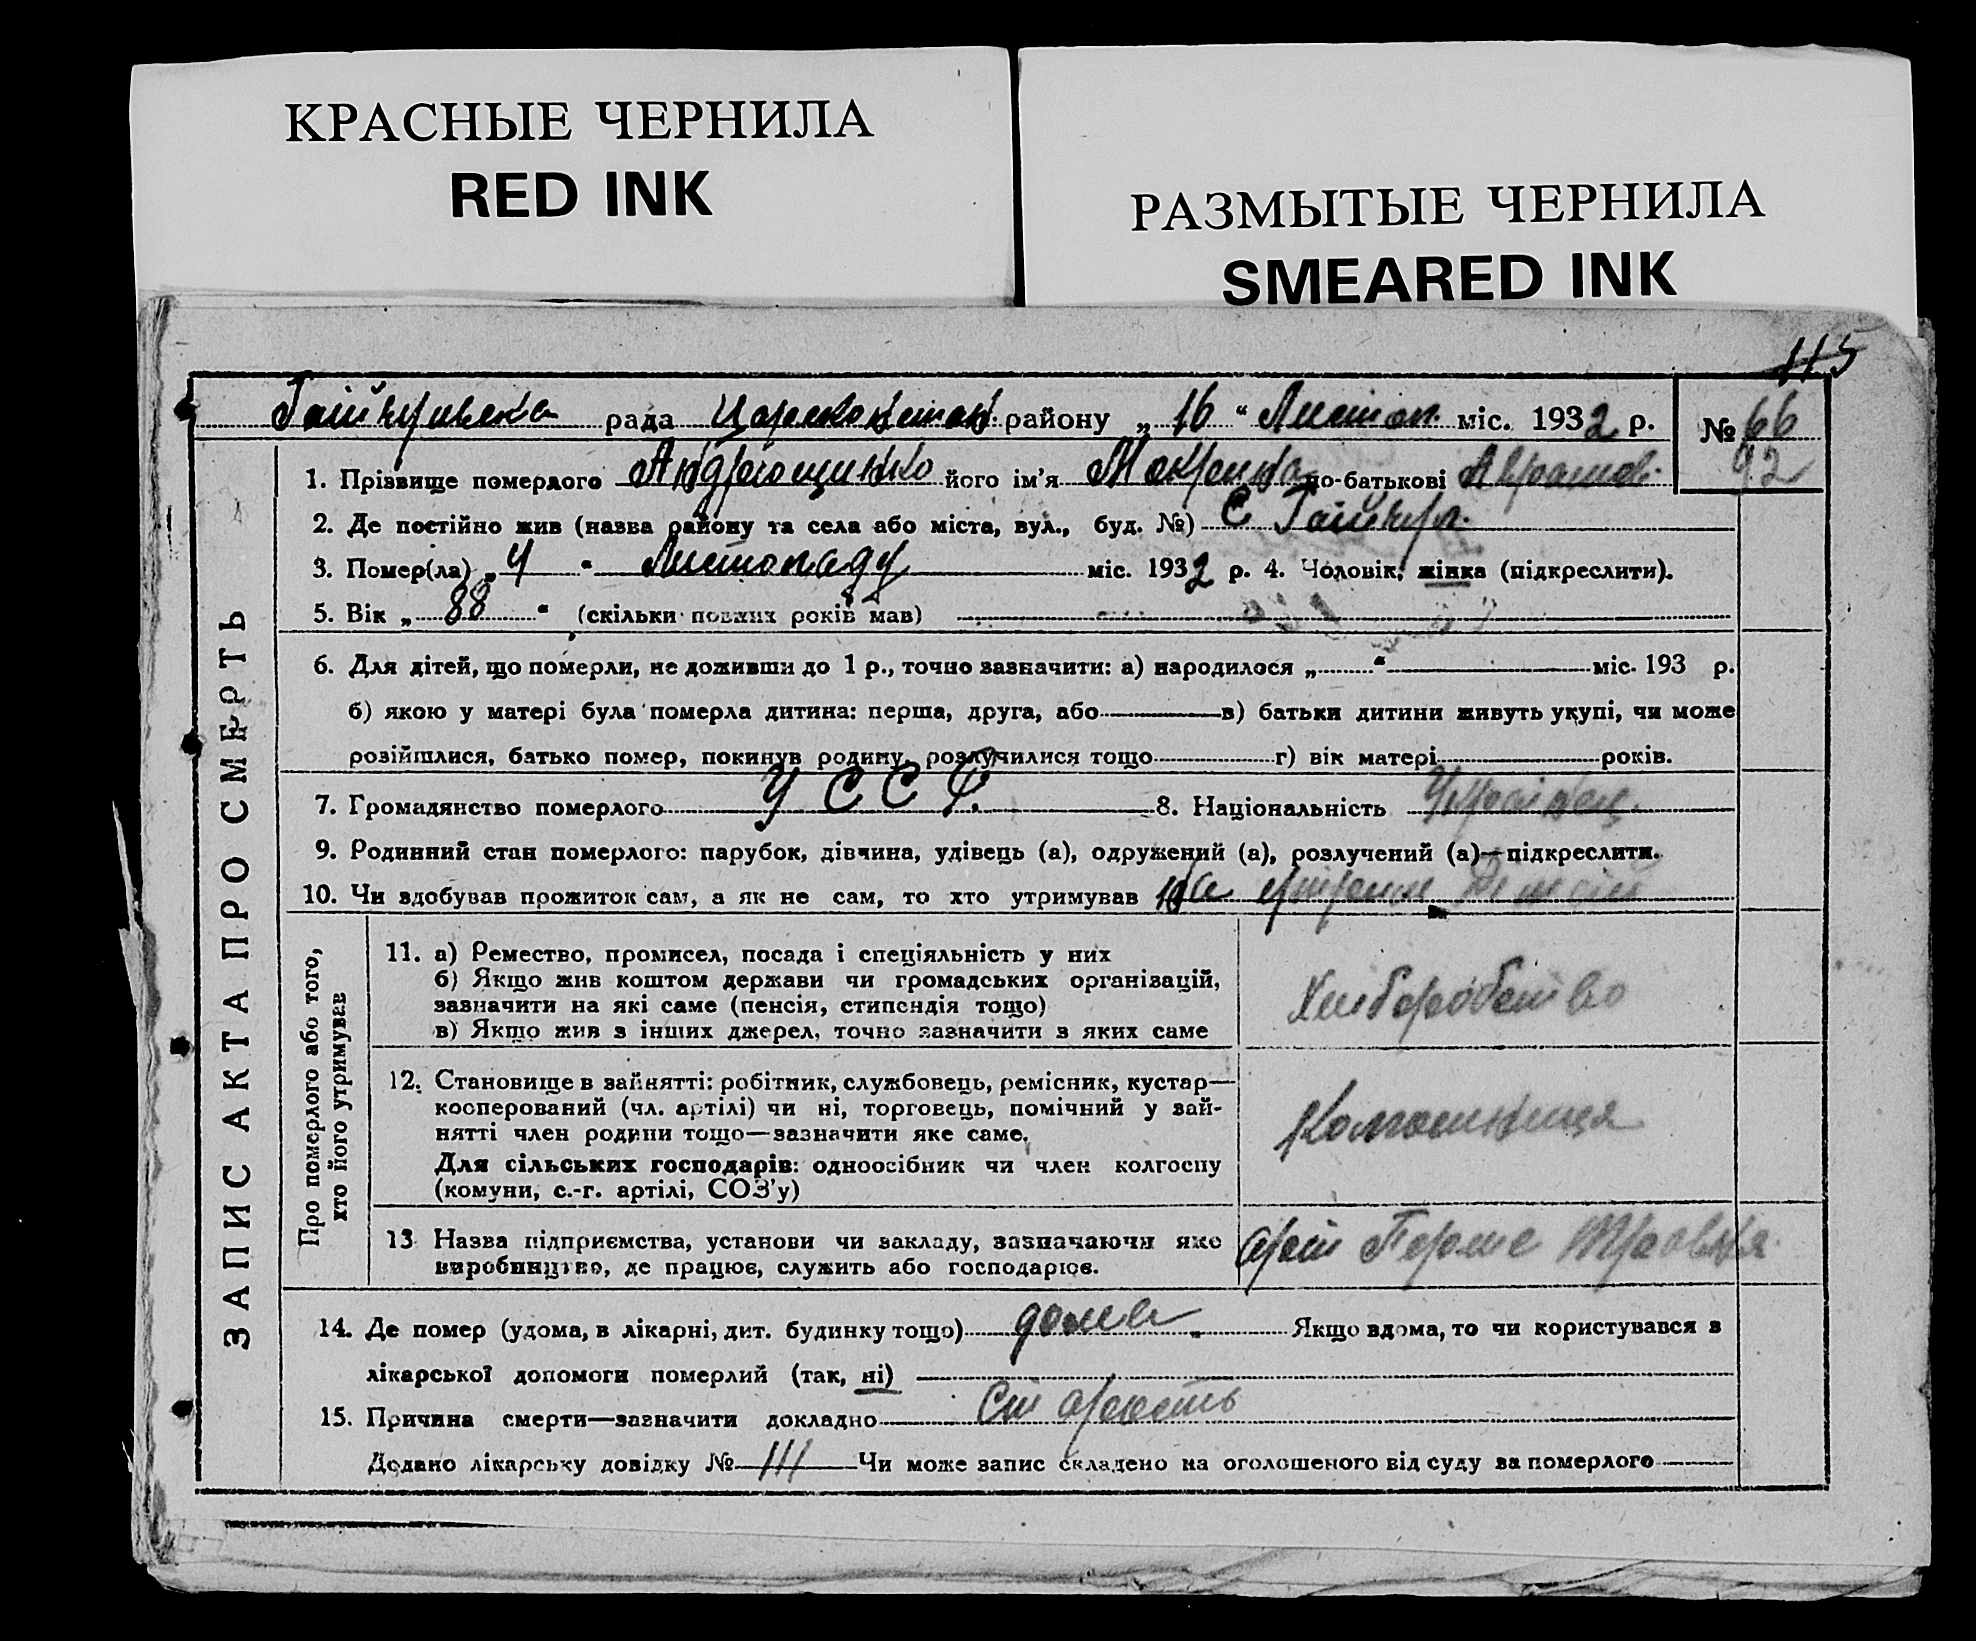 КРАСНЫЕ ЧЕРНИЛА
RED INK
РАЗМЫТЫЕ ЧЕРНИЛА
SMEARED INK
115
рада району „ 16 “ Листоп. міс. 1932 р. № 66
92
1. Прізвище померлого Андрющинко його ім’я Мокрина по-батькові
2. Де постійно жив (назва району та села або міста, вул., буд. №) С Гайчур.
3. Помер(ла) „ 4 “ Листопаду міс. 1932 р. 4. Чоловік, жінка (підкреслити).
5. Вік „ 88 “ (скільки повних років мав)
6. Для дітей, що померли, не доживши до 1 р., точно зазначити: а) народилося „ “ міс. 193 р.
б) якою у матері була померла дитина: перша, друга, або в) батьки дитини живуть укупі, чи може
розійшлися, батько помер, покинув родину, розлучилися тощо г) вік матері років.
7. Громадянство померлого У С С Р. 8. Національність
9. Родинний стан померлого: парубок, дівчина, удівець (а), одружений (а), розлучений (а)—підкреслити.
10. Чи здобував прожиток сам, а як не сам, то хто утримував
ЗАПИС АКТА ПРО СМЕРТЬ
Про померлого або того,
хто його утримував
11. а) Ремество, промисел, посада і спеціяльність у них
б) Якщо жив коштом держави чи громадських організацій,
зазначити на які саме (пенсія, стипендія тощо)
в) Якщо жив з інших джерел, точно зазначити з яких саме
Хліборобство
12. Становище в зайнятті: робітник, службовець, ремісник, кустар—
кооперований (чл. артілі) чи ні, торговець, помічний у зай-
нятті член родини тощо—зазначити яке саме.
Для сільських господарів: одноосібник чи член колгоспу
(комуни, с.-г. артілі, СОЗ’у)
13 Назва підприємства, установи чи закладу, зазначаючи яке
виробництво, де працює, служить або господарює.
арт Перше Травня
14. Де помер (удома, в лікарні, дит. будинку тощо) дома Якщо вдома, то чи користувався з
лікарської допомоги померлий (так, ні)
15. Причина смерти—зазначити докладно Старость
Додано лікарську довідку № Чи може запис складено на оголошеного від суду за померлого